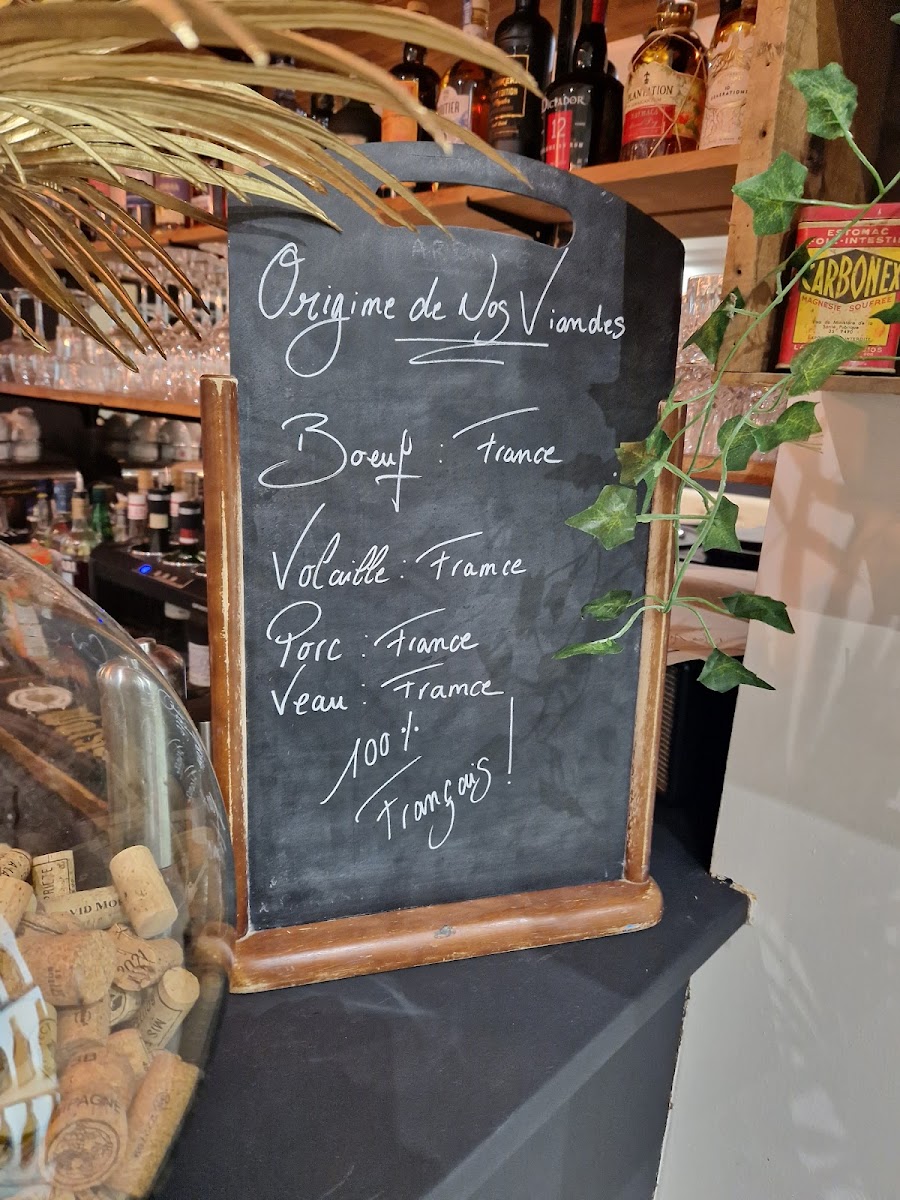 DICTADOR
12
PLANTATION
ESTOMAC
CARBONEX
MAGNESIE SOUFREE
Origine de Nos Viandes
Boeuf : France
Volaille : France
Porc : France
Veau : France
100 %
Français !